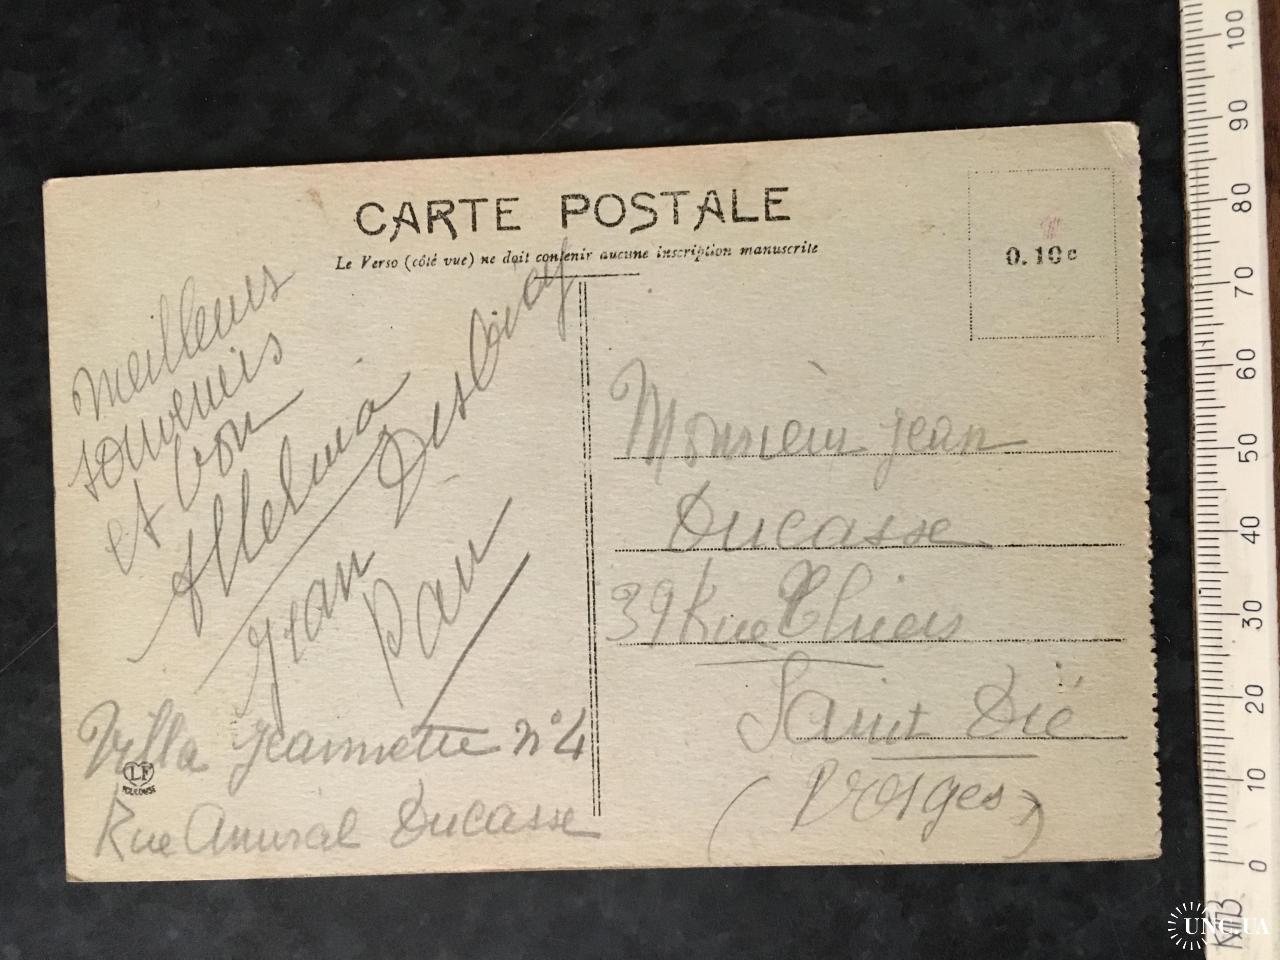 CARTE POSTALE
Le Verso (côté vue) ne doit contenir aucune inscription manuscrite
0.10c
Meilleurs
souvenirs
et bon
Alleluia
Jean
Pau
Villa Jeannette n°4
Rue Amiral Ducasse
LF
TOULOUSE
Monsieur Jean
Ducasse
39 Rue Thiers
Saint Dié
(Vosges)
100
90
80
70
60
50
40
30
20
10
0
UNC.UA